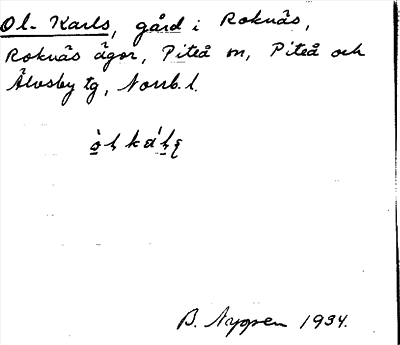 Ol-Karls, gård i Roknäs,
Roknäs ägor, Piteå m, Piteå och
Älvsby tg, Norrb. l.
B. Nygren 1934.